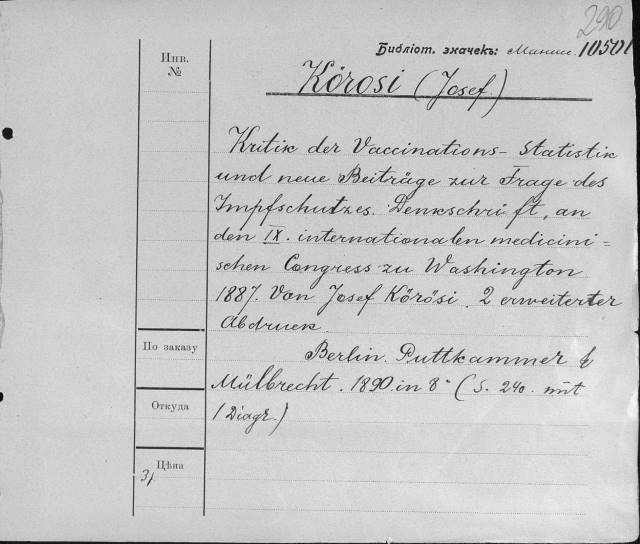 290
Библіот. значекъ: 10501
Инв.
№
Körosi (Josef.)
Kritik der Vaccinations-Statistik
und neue Beiträge zur Frage des
Impfschutzes. Denkschrift, an
den IX. internationalen medicini=
schen Congress zu Washington
1887. Von Josef Körösi. 2 erweiterter
Abdruck.
По заказу
Berlin. Puttkammer &
Mülbrecht. 1890. in 8° (S. 240. mit
1 Diagr.)
Откуда
Цѣна
3/